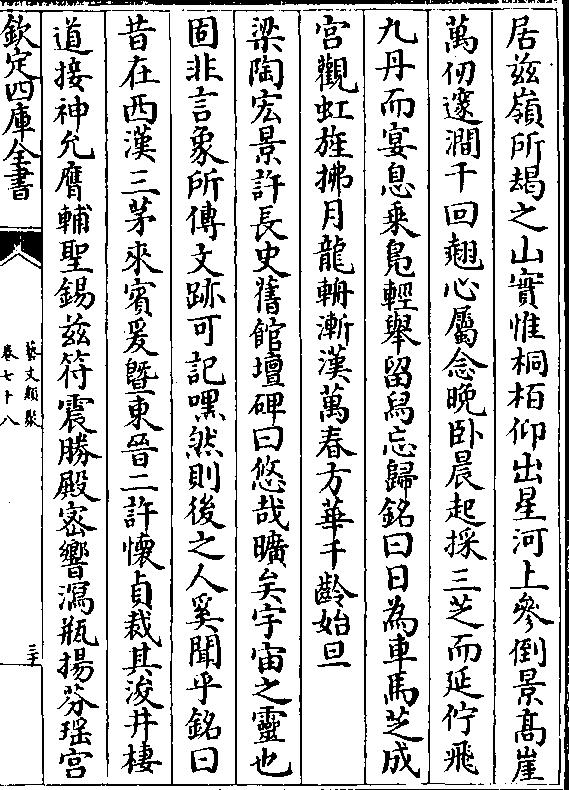 居兹嶺所堨之山實惟桐栢仰出星河上參倒景髙崖
萬仞邃澗千回翹心屬念晚卧晨起採三芝而延佇飛
九丹而宴息乘鳬輕舉留舄忘歸銘曰日為車馬芝成
宮觀虹旌拂月龍輈漸漢萬春方華千齡始旦
梁陶宏景許長史舊館壇碑曰悠哉曠矣宇宙之靈也
固非言象所傳文跡可記嘿然則後之人奚聞乎銘曰
昔在西漢三茅來賓爰暨東晉二許懐貞裁基浚井棲
道接神允膺輔聖錫兹符震勝殿密響瀉瓶揚芬瑶宫
欽定四庫全書
藝文類聚
卷七十八
三十